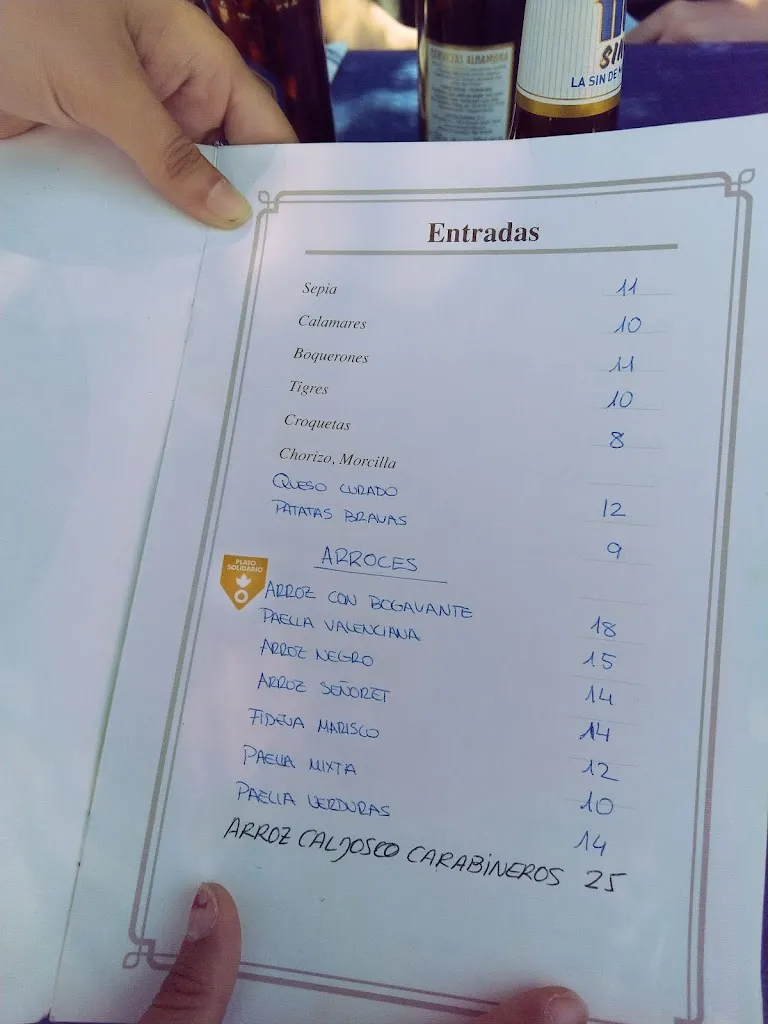 CERVEZAS ALHAMBRA
SIN
LA SIN DE
Entradas
Sepia 11
Calamares 10
Boquerones 11
Tigres 10
Croquetas 8
Chorizo, Morcilla
QUESO CURADO 12
PATATAS BRAVAS 9
ARROCES
PLATO
SOLIDARIO
ARROZ CON BOGAVANTE 18
PAELLA VALENCIANA 15
ARROZ NEGRO 14
ARROZ SEÑORET 14
FIDEUA MARISCO 12
PAELLA MIXTA 10
PAELLA VERDURAS 14
ARROZ CALDOSO CARABINEROS 25